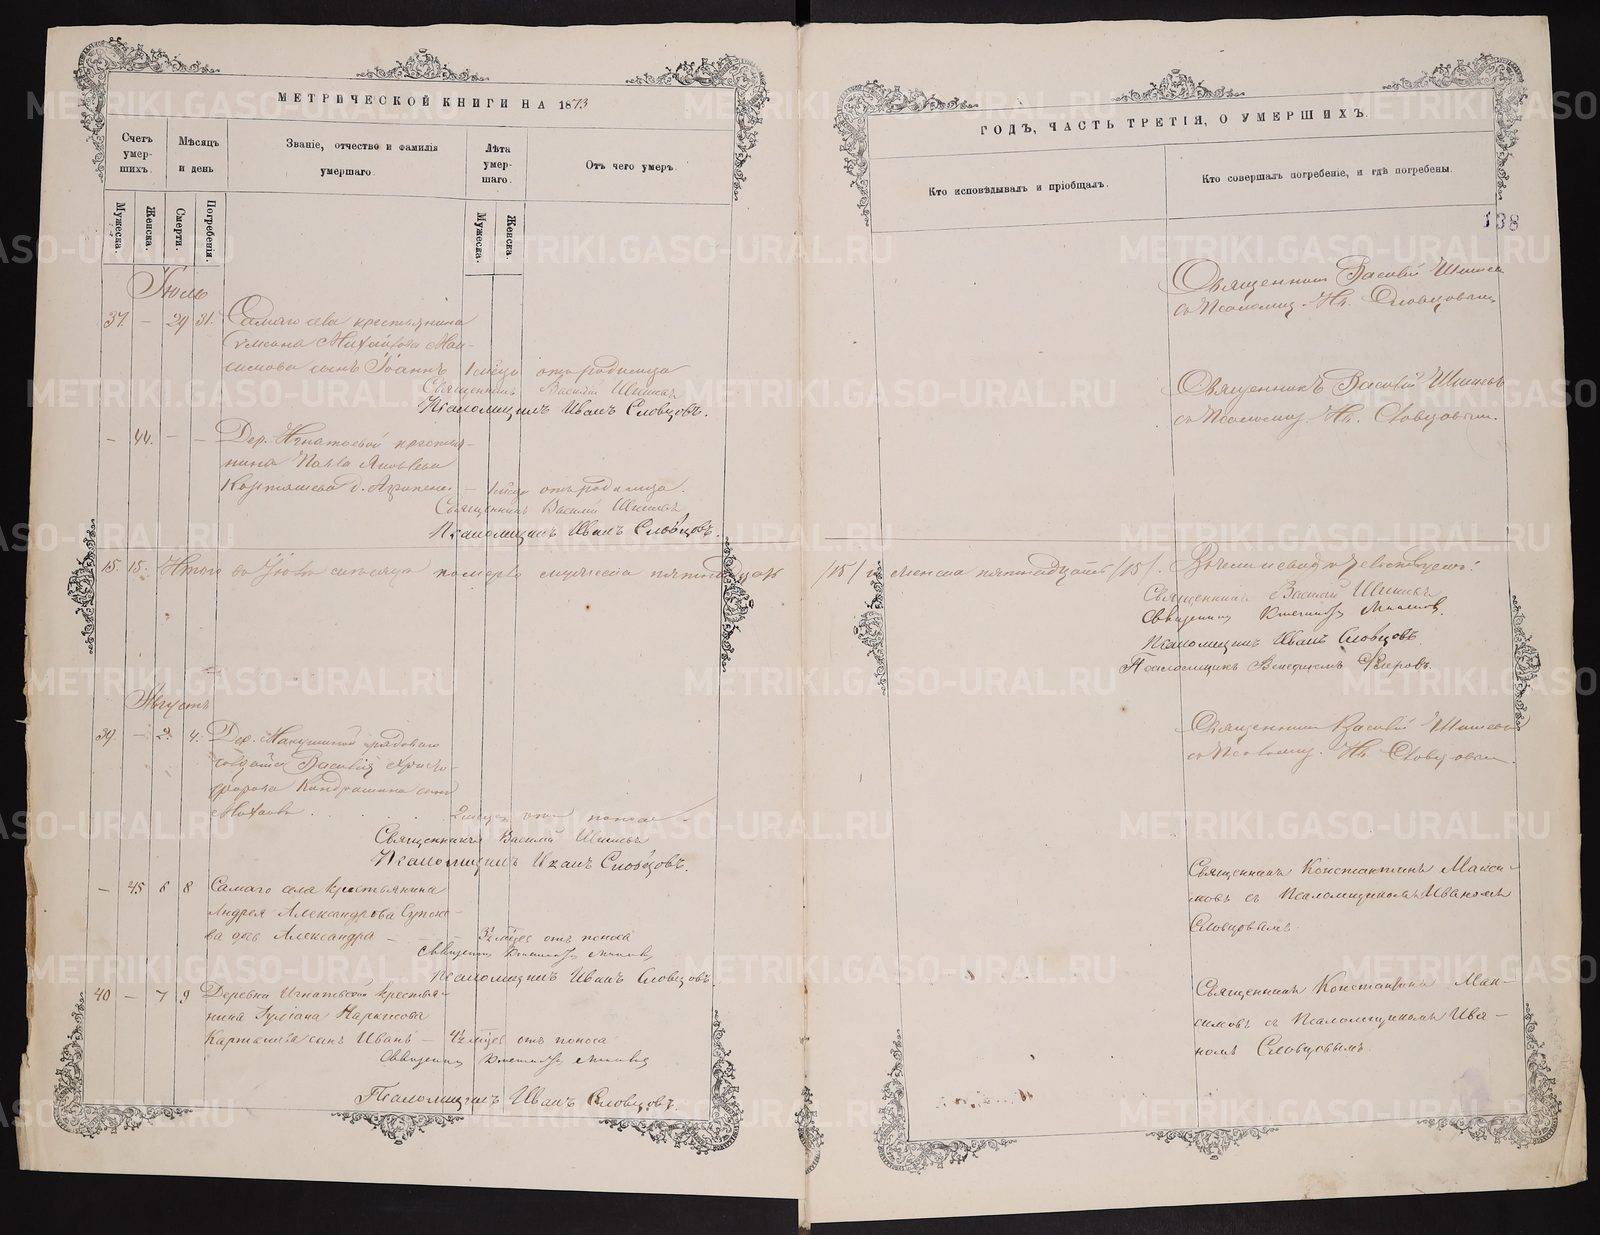 МЕТРИЧЕСКОЙ КНИГИ НА 1873
Счетъ умершихъ.
Мѣсяцъ и день
Званіе, отчество и фамилія умершаго.
Лѣта умершаго.
Отъ чего умеръ.
Мужеска.
Женска.
Смерти.
Погребенія.
Мужеска.
Женска.
Іюль
37. — 29 31. Самаго села крестьянина
Симеона Михайлова Мак-
симова сынъ Іоаннъ 1 мѣсяц отъ родимца
Священникъ Василій Шишевъ
Псаломщикъ Иванъ Словцовъ.
— 44. — — Дер. Игнатьевой крестья-
нина Павла Яковлева
Карташева д. — 1 мѣсяц отъ родимца.
Священникъ Василій Шишевъ
Псаломщикъ Иванъ Словцовъ.
15. 15. Итого въ Іюлѣ мѣсяцѣ померло мужеска пятнадцать
Августъ
39. — 2. 4. Дер. рядоваго
солдата Василія Христо-
форова Кондрашина сынъ
отъ поноса
Священникъ Василій Шишевъ
Псаломщикъ Иванъ Словцовъ.
— 45 6 8 Самаго села крестьянина
Андрея Александрова
дочь Александра — 3½ мѣсяц отъ поноса
Священникъ
Псаломщикъ Иванъ Словцовъ.
40 — 7 9 Деревни Игнатьевой крестья-
нина Іуліана Наркисова
Карташева сынъ Иванъ — 4½ мѣсяц отъ поноса
Священникъ
Псаломщикъ Иванъ Словцовъ.
ГОДЪ, ЧАСТЬ ТРЕТІЯ, О УМЕРШИХЪ.
Кто исповѣдывалъ и пріобщалъ.
Кто совершалъ погребеніе, и гдѣ погребены.
138
Священникъ Василій Шишевъ
съ Псаломщ. Ив. Словцовым
Священникъ Василій Шишевъ
съ Псаломщ. Ив. Словцовым.
/15/ и женска пятнадцать /15/.
Священникъ Василій Шишевъ
Священникъ
Псаломщикъ Иванъ Словцовъ
Псаломщикъ Венедиктъ Флеровъ.
Священникъ Василій Шишевъ
съ Псаломщ. Ив. Словцовым.
Священникъ Константинъ Макси-
мовъ съ Псаломщикомъ Иваномъ
Словцовымъ.
Священникъ Константинъ Мак-
симовъ съ Псаломщикомъ Ива-
номъ Словцовымъ.
METRIKI.GASO-URAL.RU